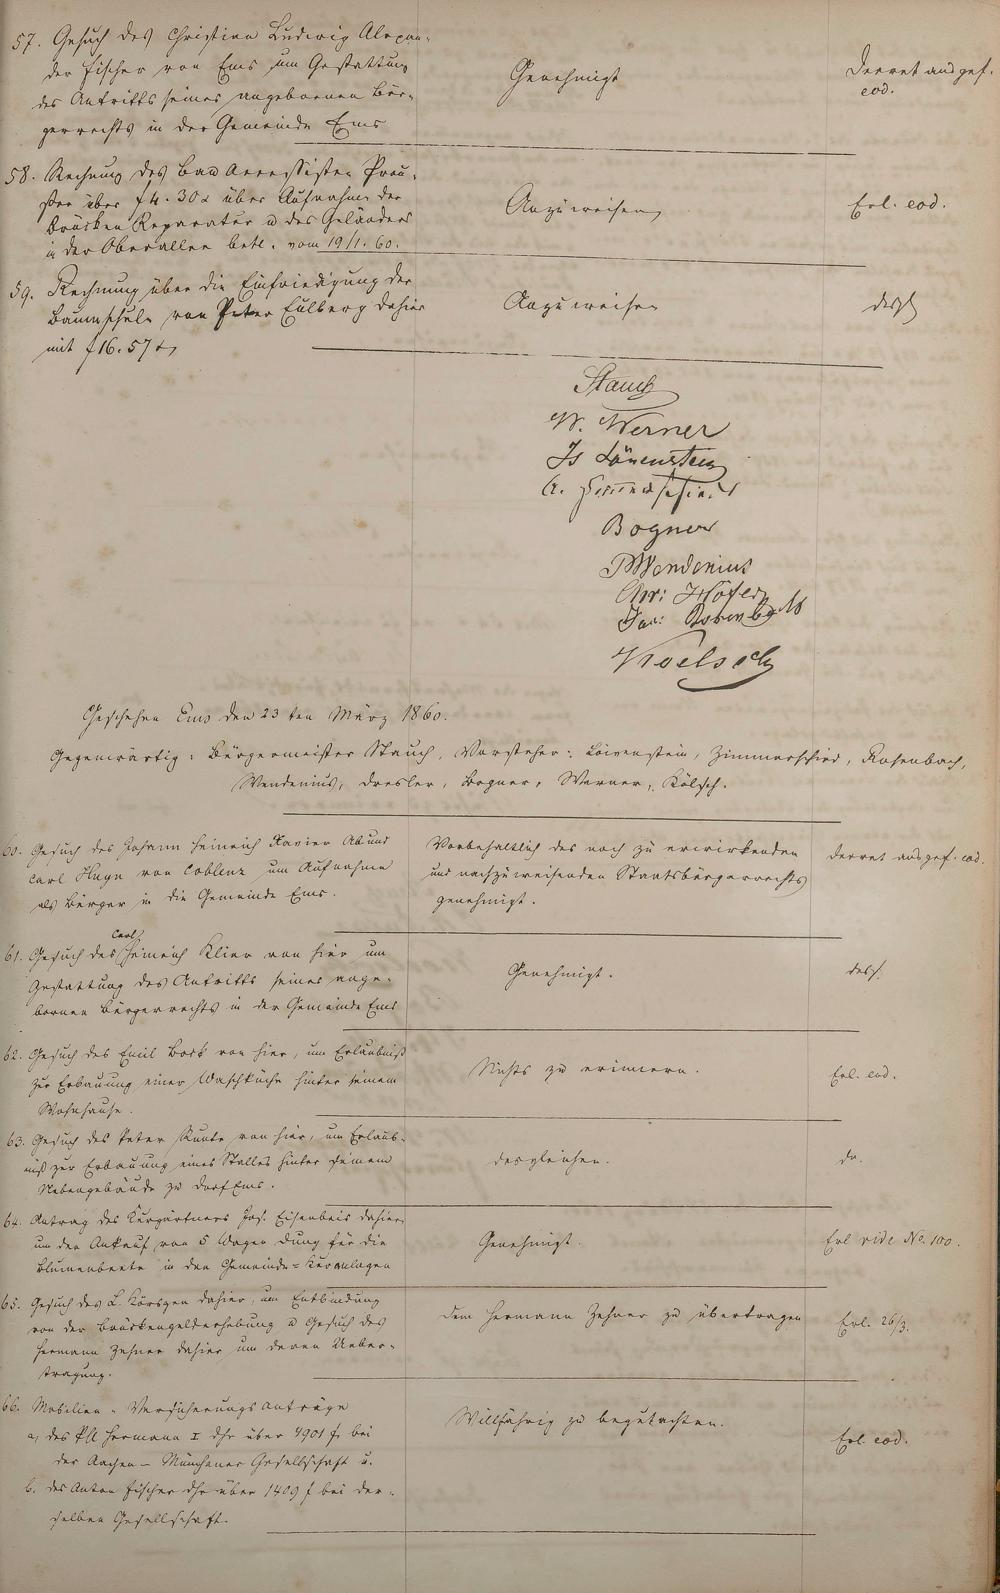 57. Gesuch des Christian Ludwig Alexan-
der Fischer von Ems um Gestattung
des Antritts seines angebornen Bür-
gerrechts in der Gemeinde Ems
Genehmigt
Decret ausgef.
eod.
58. Rechnung des Bau Accessisten
über f 4. 30 x über Aufnahme der
Brücken Reparatur u des Geländers
in der Oberallee betr. vom 19/1. 60.
Anzuweisen
Erl. eod.
59. Rechnung über die Einfriedigung der
Baumschule von Peter Eulberg dahier
mit f 16. 57 x
Anzuweisen
desgl
Stauch
W. Werner
Is Löwenstein
Bogner
P Wendenius
Chr: Höfer
Jac: Rosenbach
Koelsch
Geschehen Ems den 23ten März 1860.
Gegenwärtig: Bürgermeister Stauch, Vorsteher: Löwenstein, Zimmerschied, Rosenbach,
Wendenius, Dresler, Bogner, Werner, Kölsch.
60. Gesuch des Johann Heinrich Xavier
Carl Huyn von Coblenz um Aufnahme
als Bürger in die Gemeinde Ems.
Vorbehaltlich des noch zu erwirkenden
und nachzuweisenden Staatsbürgerrechts
genehmigt.
Decret ausgef. eod.
61. Gesuch des Carl Heinrich Klier von hier um
Gestattung des Antritts seines ange-
bornen Bürgerrechts in der Gemeinde Ems
Genehmigt.
desgl.
62. Gesuch des Emil Bock von hier, um Erlaubniß
zur Erbauung einer Waschküche hinter seinem
Wohnhause.
Nichts zu erinnern.
Erl. eod.
63. Gesuch des Peter Kunte von hier, um Erlaub-
niß zur Erbauung eines Stalles hinter seinem
Nebengebäude zu Dorf Ems.
desgleichen.
do.
64. Antrag des Kurgärtners Jos. Eisenbeis dahier,
um den Ankauf von 5 Wagen Dung für die
Blumenbeete in den Gemeinde-Kuranlagen
Genehmigt.
Erl vide No. 100.
65. Gesuch des L. Körsgen dahier, um Entbindung
von der Brückengelderhebung u Gesuch des
Hermann Zehner dahier um deren Ueber-
tragung.
Dem Hermann Zehner zu übertragen
Erl. 26/3.
66. Mobilien-Versicherungsanträge
a, des Phl Hermann I dhr über 4901 f bei
der Aachen-Münchener Gesellschaft u.
b. des Anton Fischer dhr über 1409 f bei der-
selben Gesellschaft.
Willfährig zu begutachten.
Erl. eod.